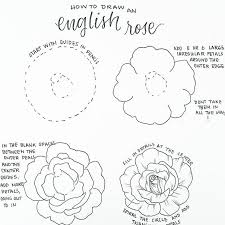 HOW TO DRAW AN
english rose
START WITH GUIDES IN PENCIL
ADD 5 OR 6 LARGE
IRREGULAR PETALS
AROUND THE
OUTER EDGE
DON'T TAKE
THEM IN
ALL THE WAY
IN THE BLANK SPACE
BETWEEN THE
OUTER PETALS
AND THE
CENTER
GUIDES,
ADD MORE
PETALS,
GOING OUT
TO IN
FILL IN PETALS AT THE
THE CIRCLE AND ADD